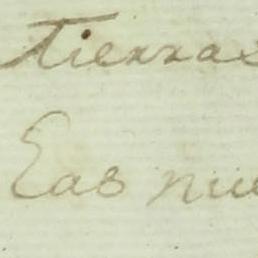 Tierras
Las nue